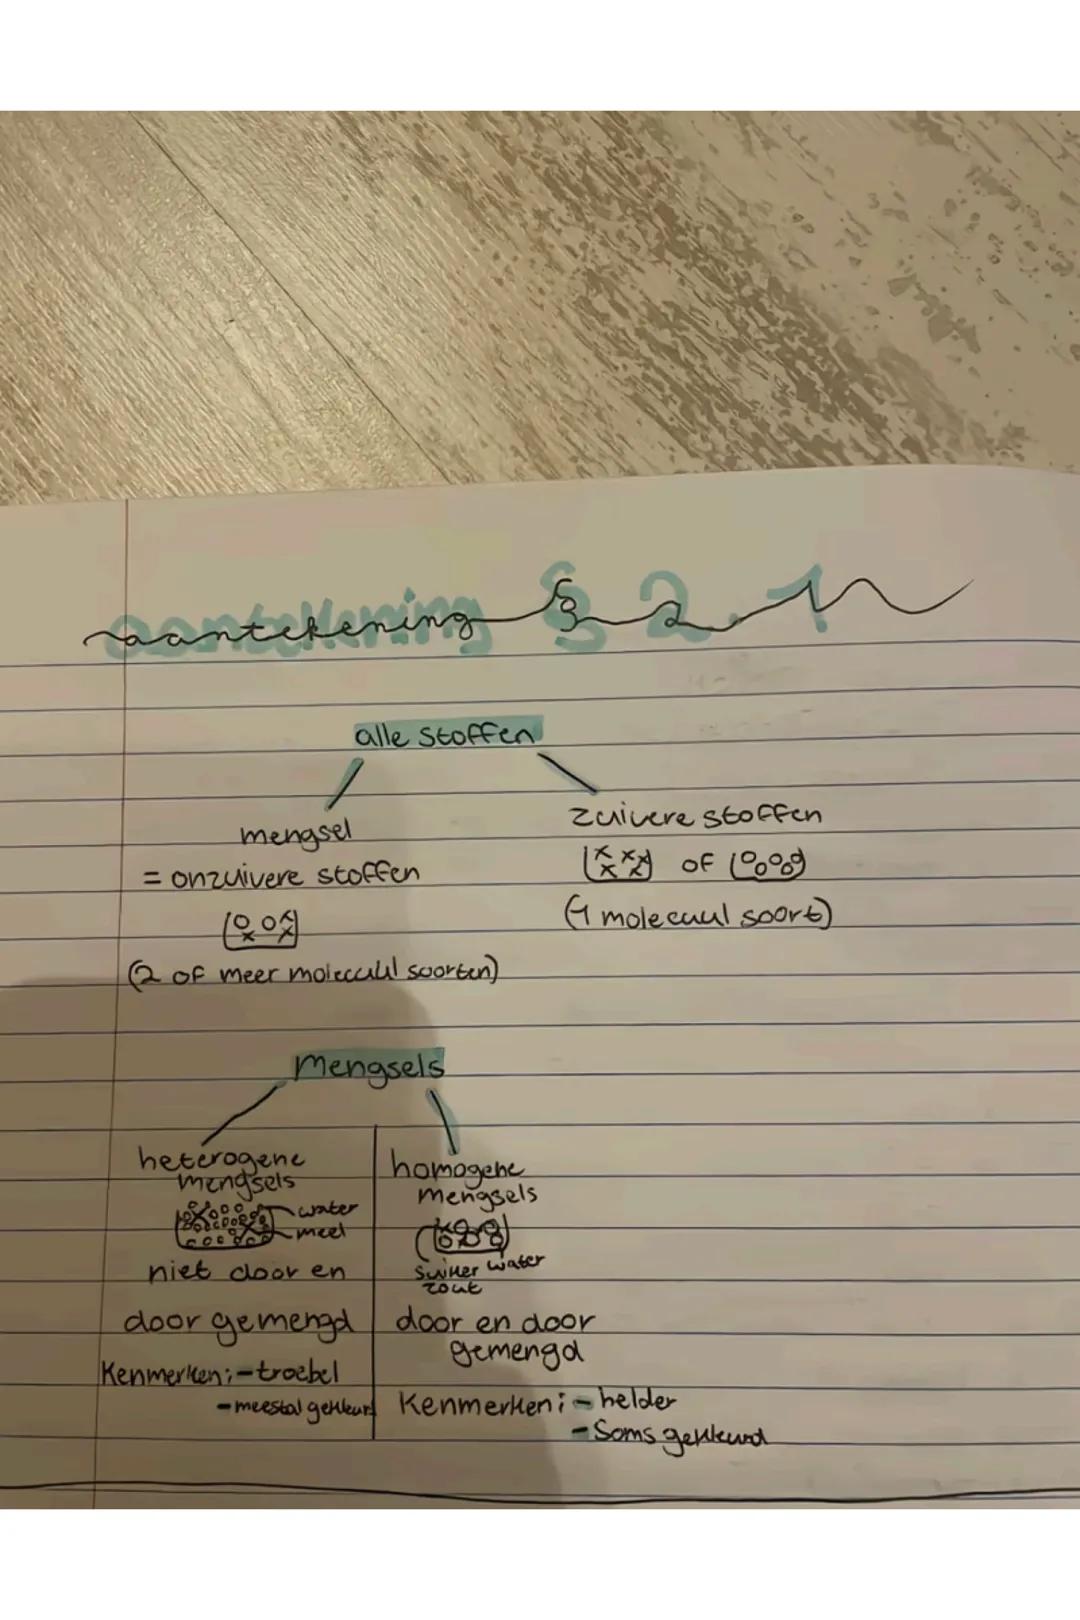 aantekening § 2.1
alle stoffen
mengsel
= onzuivere stoffen
(2 of meer molecuul soorten)
zuivere stoffen
of
(1 molecuul soort)
Mengsels
heterogene
mengsels
water
meel
niet door en
door gemengd
Kenmerken: - troebel
- meestal gekleurd
homogene
mengsels
suiker water
zout
door en door
gemengd
Kenmerken: - helder
- Soms gekleurd